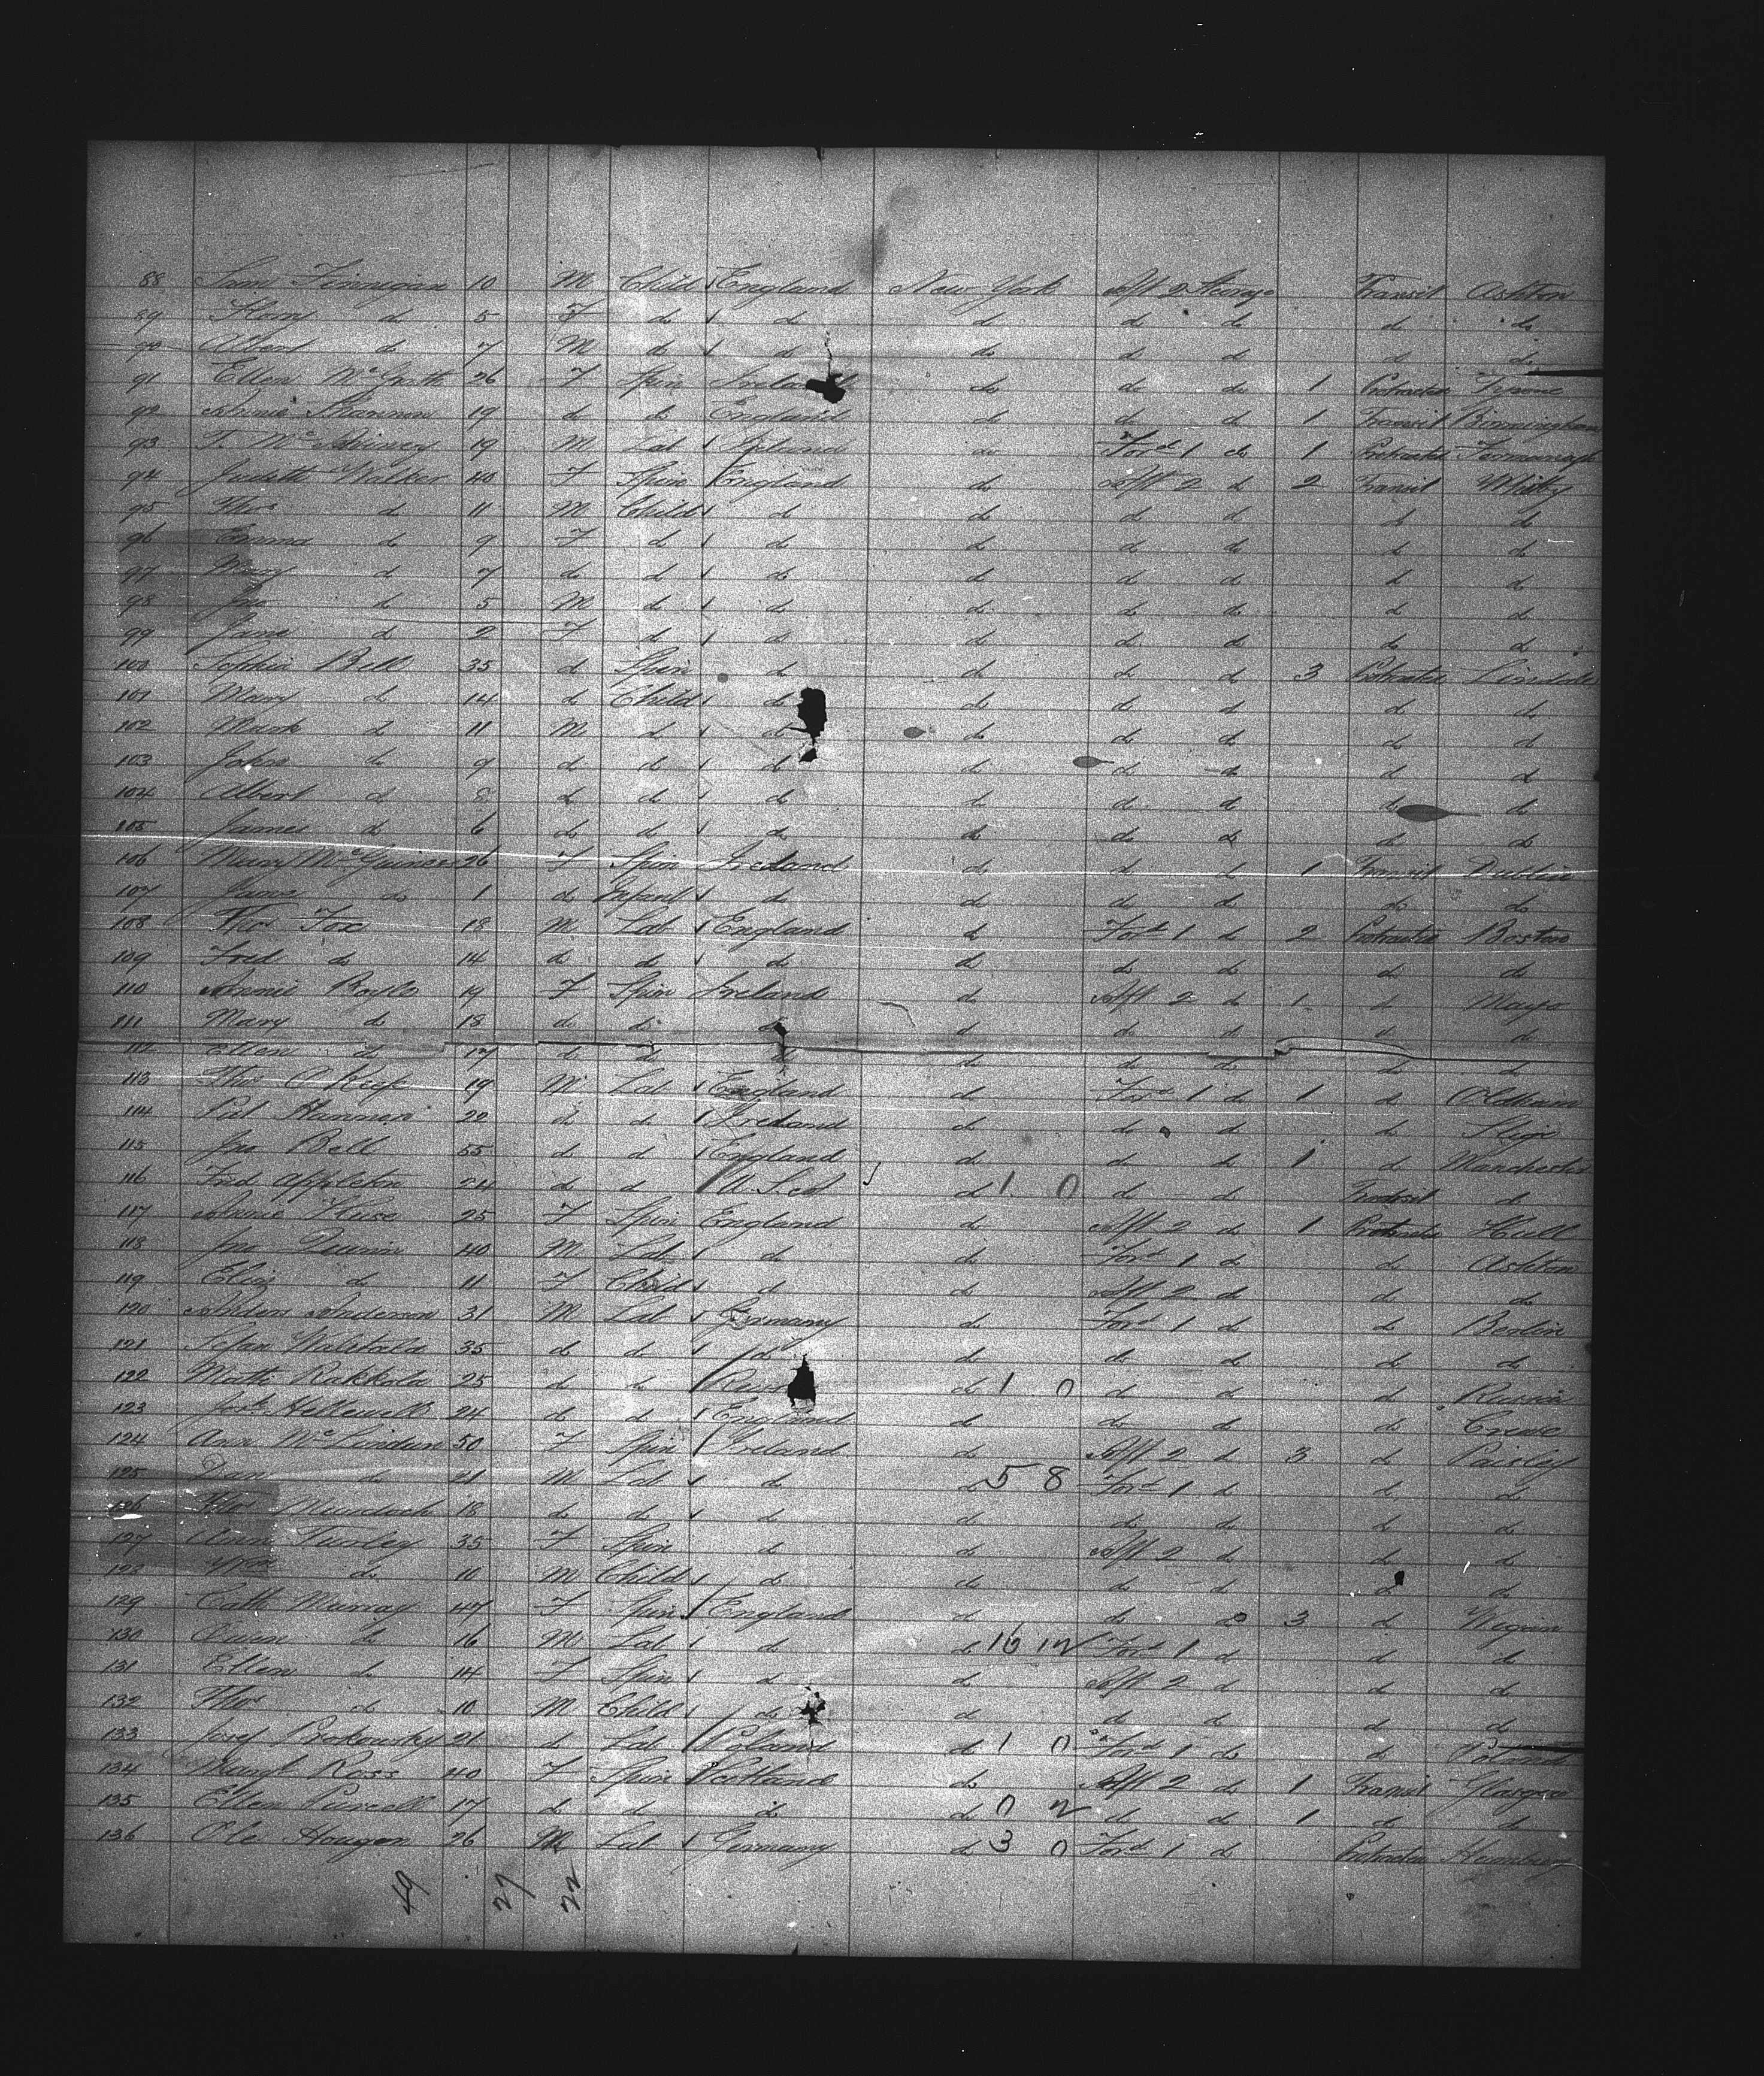 88 Saml Finnigan 10 M Child England New York Aft 2 Steerge Transit Ashton
89 do 5 F do do do do do do do
90 Albert do 7 M do do do do do do do
91 Ellen McGrath 26 F Spin Ireland do do do 1 Protracted Tyrone
92 Annie Shannon 19 do do England do do do 1 Transit Birmingham
93 T. 19 M Lab Ireland do Ford 1 do 1 Protracted Fermanagh
94 Judith Walker 40 F Spin England do Aft 2 do 2 Transit Whitby
95 Thos do 11 M Child do do do do do do
96 Emma do 9 F do do do do do do do
97 Mary do 7 do do do do do do do do
98 Jno do 5 M do do do do do do do
99 Jane do 2 F do do do do do do do
100 Sophia Bell 35 do Spin do do do do 3 Protracted Lindale
101 Mary do 14 do Child do do do do do do
102 Mark do 11 M do do do do do do do
103 John do 9 do do do do do do do do
104 Albert do 8 do do do do do do do do
105 James do 6 do do do do do do do do
106 Mary McGuiness 26 F Spin Ireland do do do 1 Transit Dublin
107 do 1 do Infant do do do do do do
108 Thos Fox 18 M Lab England do Ford 1 do 2 Protracted Boston
109 Fred do 14 do do do do do do do do
110 Annie Boyle 19 F Spin Ireland do Aft 2 do 1 do Mayo
111 Mary do 18 do do do do do do do do
112 Ellen do 17 do do do do do do do
113 Thos O'Keefe 19 M Lab England do Ford 1 do 1 do Oldham
114 Pat Hannon 22 do do Ireland do do do do Sligo
115 Jno Bell 55 do do England do do do 1 do Manchester
116 Fred Appleton 24 do do do 1 0 do do Transit do
117 Annie 25 F Spin England do Aft 2 do 1 Protracted Hull
118 Jno 40 M Lab do do Ford 1 do do Ashton
119 Eliz do 11 F Child do do Aft 2 do do do
120 Anders Anderson 31 M Lab Germany do Ford 1 do do Berlin
121 35 do do do do do do do do
122 Matti Rakkola 25 do do do 1 0 do do do Russia
123 Josh Hellewell 24 do do England do do do do Crewe
124 Ann McLindun 50 F Spin Ireland do Aft 2 do 3 do Paisley
125 Dan do 21 M Lab do do 5 8 Ford 1 do do do
126 Thos Murdoch 18 do do do do do do do do
127 Ann Turley 35 F Spin do do Aft 2 do do do
128 do 10 M Child do do do do do do
129 Cath Murray 47 F Spin England do do do 3 do Wigan
130 do 16 M Lab do do 16 12 Ford 1 do do do
131 Ellen do 14 F Spin do do Aft 2 do do do
132 Thos do 10 M Child do do do do do do
133 Josef Prakowsky 21 do Lab Poland do 1 0 Ford 1 do do Poland
134 Margt Ross 40 F Spin Scotland do Aft 2 do 1 Transit Glasgow
135 Ellen Purcell 17 do do do do 0 2 do do 1 do do
136 Ole Hougen 26 M Lab Germany do 3 0 Ford 1 do Protracted Hamburg
49 27 22